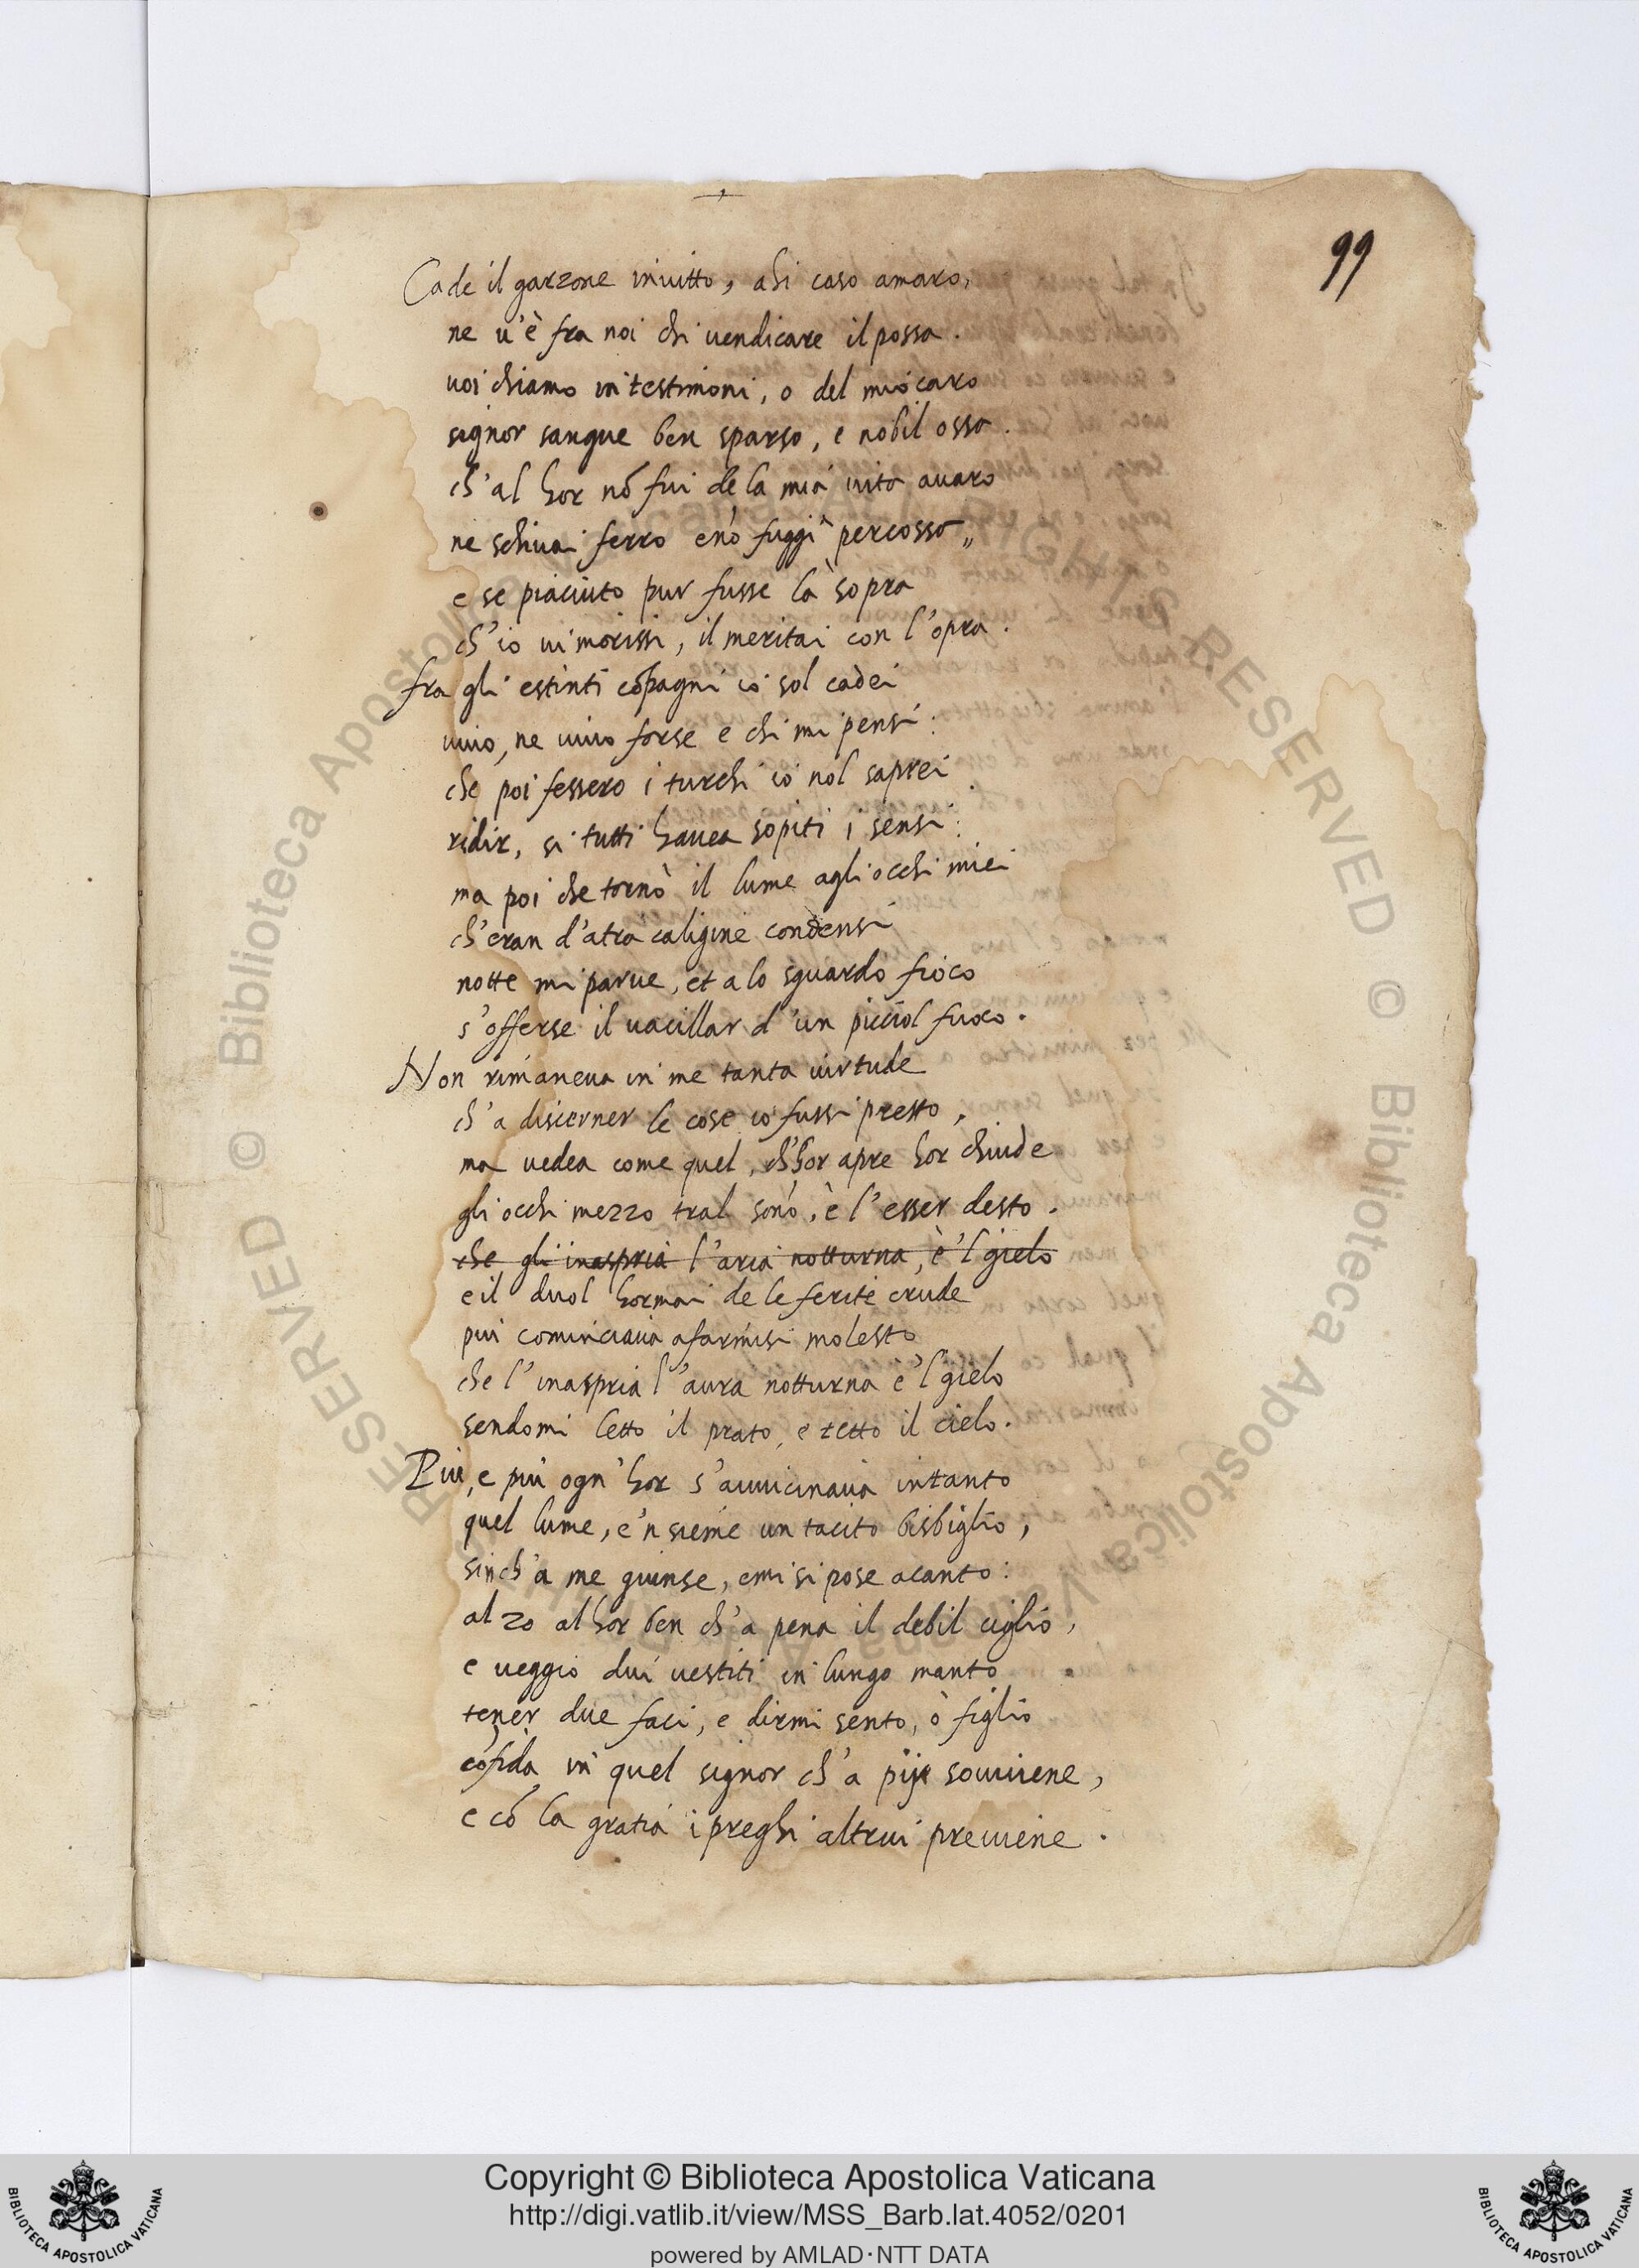 99
Cade il garzone inuitto, ahi caso amaro,
ne u'è fra noi chi uendicare il possa.
uoi chiamo in testimoni, o del mio caro
signor sangue ben sparso, e nobil ossa.
ch'al hor nõ fui de la mia uita auaro
ne schiuai ferro e nõ fuggì percossa
e se piaciuto pur fusse là sopra
ch'io ui morissi, il meritai con l'opra.
fra gli estinti cõpagni io sol cadei
uiuo, ne uiuo forse e chi mi pensi:
che poi fessero i turchi io nol saprei
ridir, si tutti hauea sopiti i sensi:
ma poi che tornò il lume agli occhi miei
ch'eran d'atra caligine condensi
notte mi parue, et a lo sguardo fioco
s'offerse il uacillar d'un picciol fuoco.
Non rimaneua in me tanta uirtude
ch'a discerner le cose io fussi presto,
ma uedea come quel, ch'hor apre hor chiude
gli occhi mezzo tral sonó, è l'esser desto.
che gli inaspria l'aria notturna, è'l gielo
e il duol hormai de le ferite crude
piu cominciaua a farmisi molesto
che l'inaspria l'aura notturna è'l gielo
sendomi letto il prato, e tetto il cielo.
Piu, e più ogn'hor s'auuicinaua intanto
quel lume, e'nsieme un tacito bisbiglio,
sinch'a me giunse, e mi si pose acanto:
alzo al hor ben ch'a pena il debil ciglio,
e ueggio dui uestiti in lungo manto
tener due faci, e dirmi sento, ò figlio
cõfida in quel signor ch'a pij souuiene,
e cõ la gratia i preghi altrui preuiene.
RESERVED © Biblioteca Apostolica Vaticana
Copyright © Biblioteca Apostolica Vaticana
http://digi.vatlib.it/view/MSS_Barb.lat.4052/0201
powered by AMLAD·NTT DATA
BIBLIOTECA APOSTOLICA VATICANA
BIBLIOTECA APOSTOLICA VATICANA